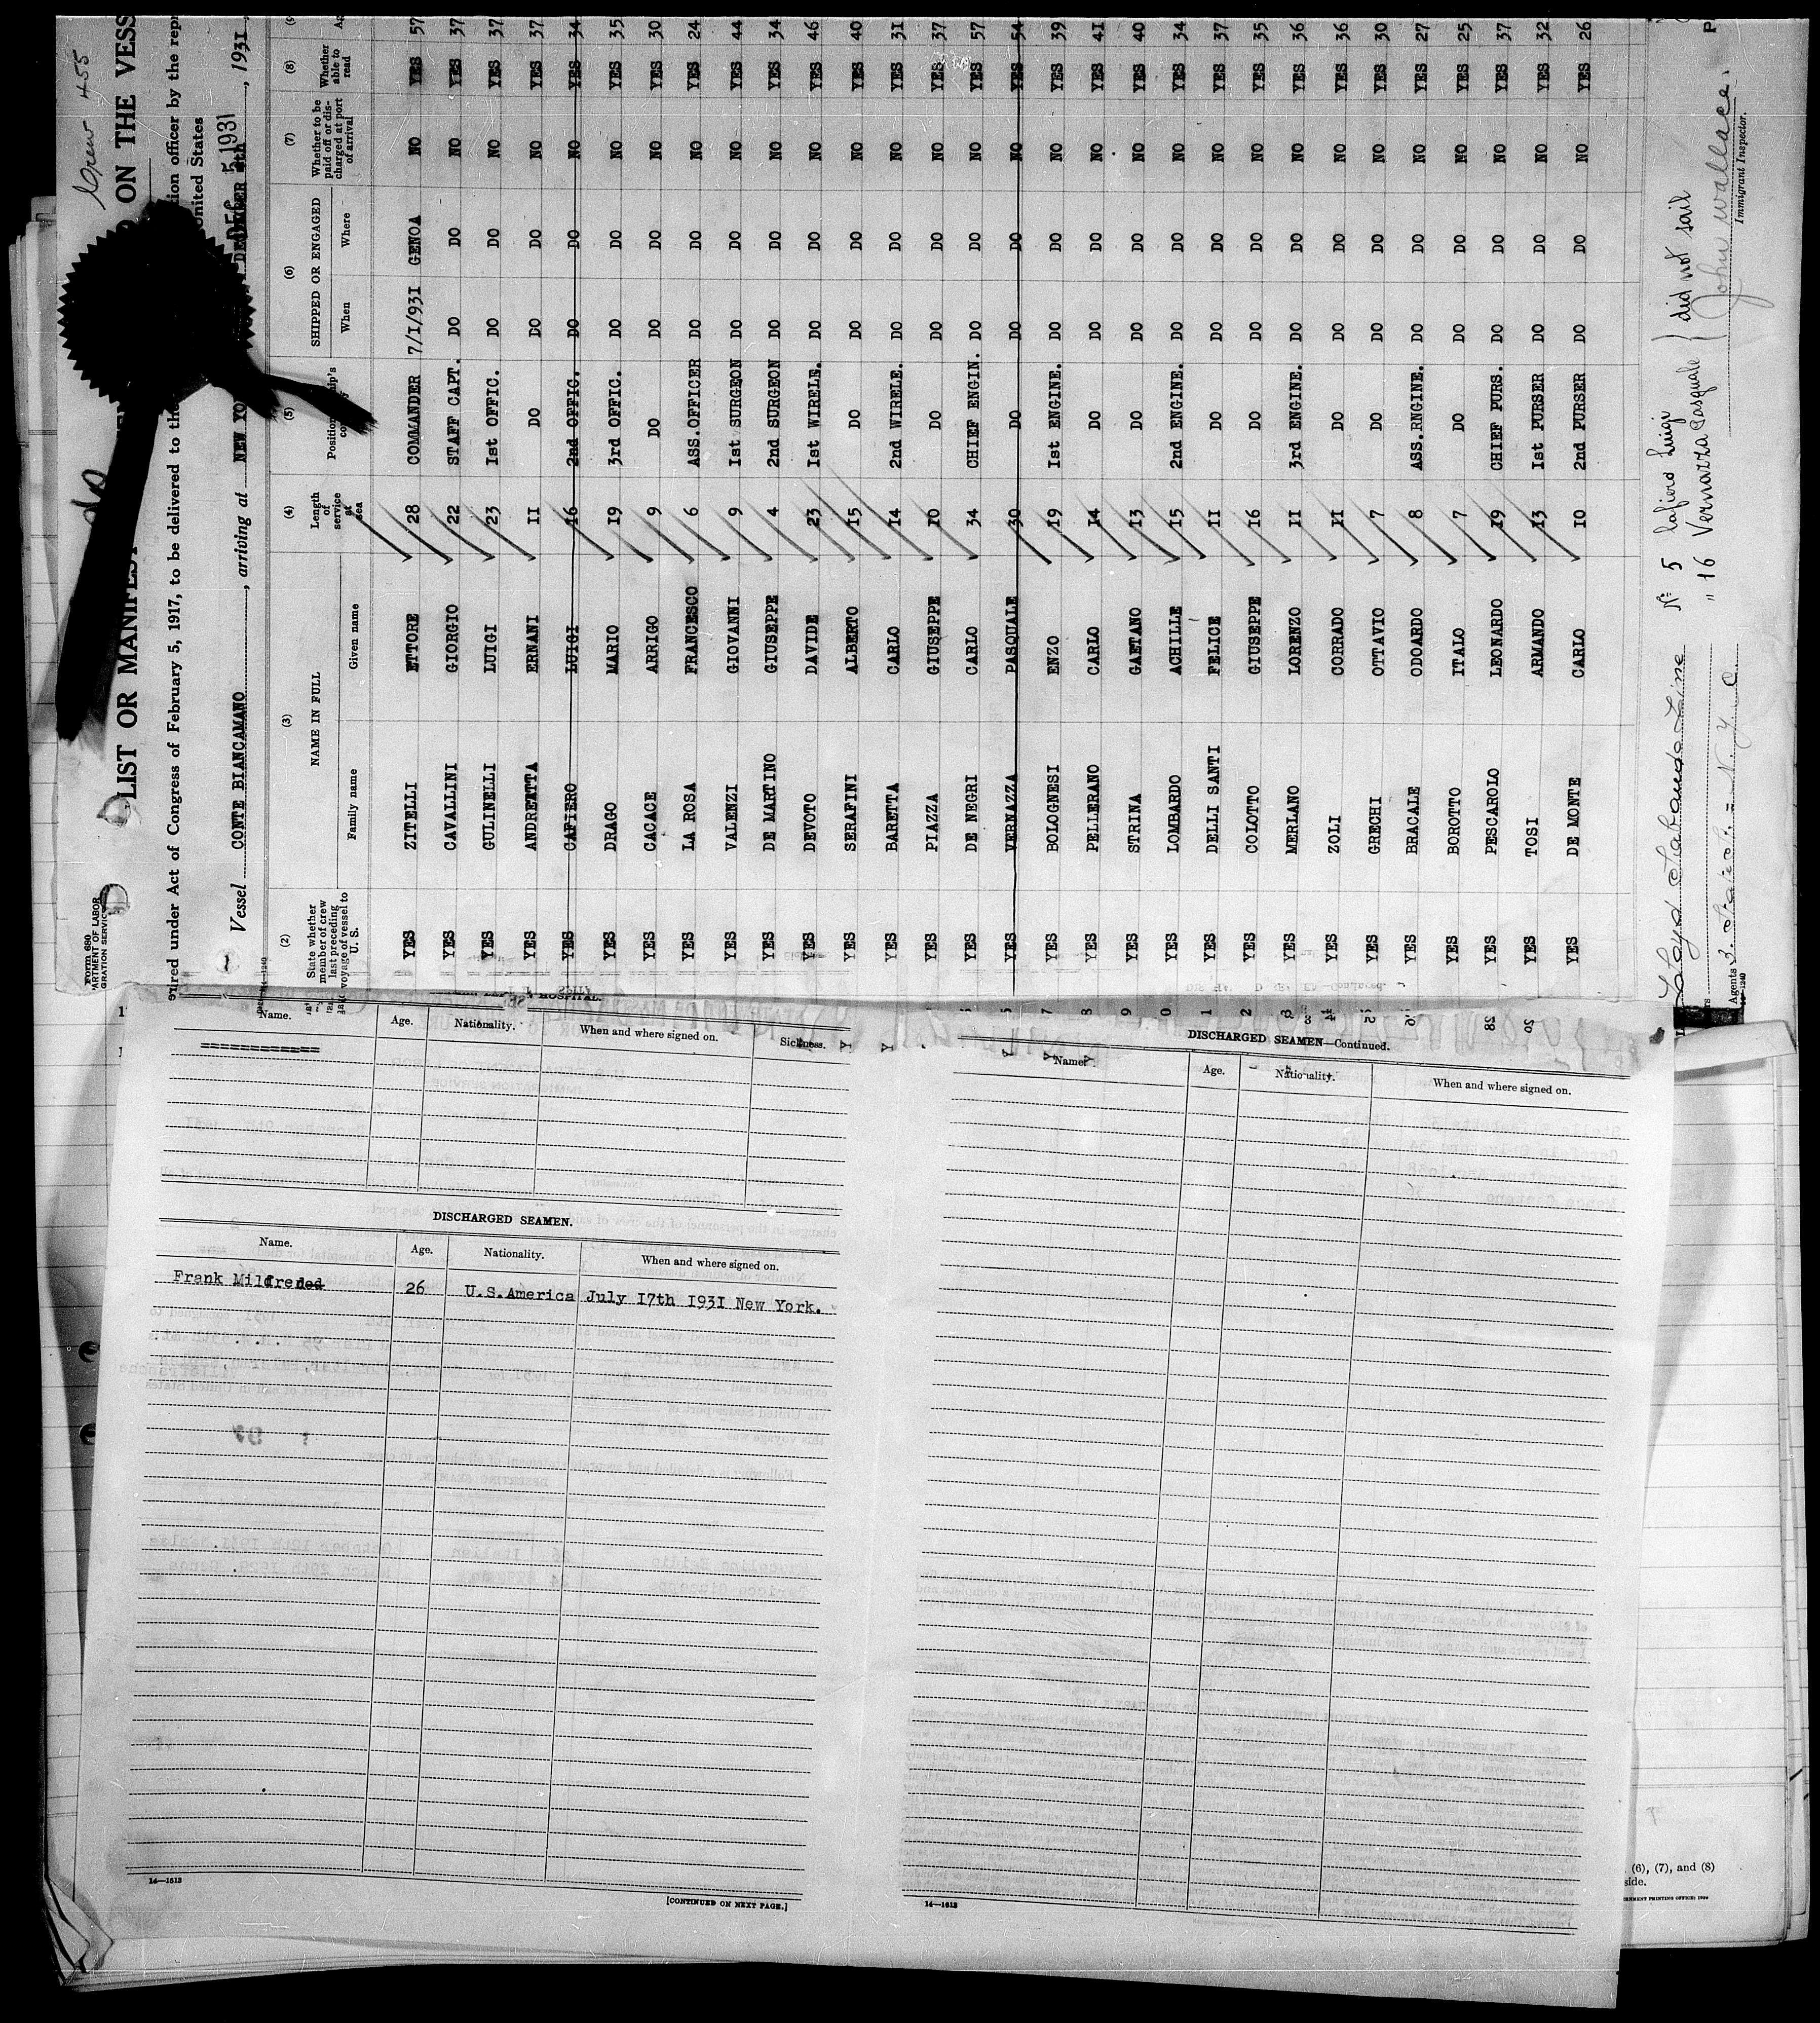 Crew 455
Form 680
ARTMENT OF LABOR
GRATION SERVICE
LIST OR MANIFEST
ON THE VESS
ired under Act of Congress of February 5, 1917, to be delivered to the
tion officer by the repr
United States
Vessel CONTE BIANCAMANO, arriving at NEW YO DECEMBER 4th, 1931
DEC 5 1931
(2) (3) (4) (5) (6) (7) (8)
State whether member of crew last preceding voyage of vessel to U. S.
NAME IN FULL
Family name Given name
Length of service at sea
Position
SHIPPED OR ENGAGED
When Where
Whether to be paid off or discharged at port of arrival
Whether able to read
YES ZITELLI ETTORE 28 COMMANDER 7/I/931 GENOA NO YES 57
YES CAVALLINI GIORGIO 22 STAFF CAPT. DO DO NO YES 37
YES GULINELLI LUIGI 23 Ist OFFIC. DO DO NO YES 37
YES ANDREATTA ERNANI II DO DO DO NO YES 37
YES CAFIERO LUIGI I6 2nd OFFIC. DO DO NO YES 34
YES DRAGO MARIO I9 3rd OFFIC. DO DO NO YES 35
YES CACACE ARRIGO 9 DO DO DO NO YES 30
YES LA ROSA FRANCESCO 6 ASS.OFFICER DO DO NO YES 24
YES VALENZI GIOVANNI 9 Ist SURGEON DO DO NO YES 44
YES DE MARTINO GIUSEPPE 4 2nd SURGEON DO DO NO YES 34
YES DEVOTO DAVIDE 23 Ist WIRELE. DO DO NO YES 46
YES SERAFINI ALBERTO I5 DO DO DO NO YES 40
YES BARETTA CARLO I4 2nd WIRELE. DO DO NO YES 3I
YES PIAZZA GIUSEPPE I0 DO DO DO NO YES 37
YES DE NEGRI CARLO 34 CHIEF ENGIN. DO DO NO YES 57
YES VERNAZZA PASQUALE 30 DO DO DO NO YES 54
YES BOLOGNESI ENZO I9 Ist ENGINE. DO DO NO YES 39
YES PELLERANO CARLO I4 DO DO DO NO YES 4I
YES STRINA GAETANO I3 DO DO DO NO YES 40
YES LOMBARDO ACHILLE I5 2nd ENGINE. DO DO NO YES 34
YES DELLI SANTI FELICE II DO DO DO NO YES 37
YES COLOTTO GIUSEPPE I6 DO DO DO NO YES 35
YES MERLANO LORENZO II 3rd ENGINE. DO DO NO YES 36
YES ZOLI CORRADO II DO DO DO NO YES 36
YES GRECHI OTTAVIO 7 DO DO DO NO YES 30
YES BRACALE ODOARDO 8 ASS.RNGINE. DO DO NO YES 27
YES BOROTTO ITALO 7 DO DO DO NO YES 25
YES PESCAROLO LEONARDO I9 CHIEF PURS. DO DO NO YES 37
YES TOSI ARMANDO I3 Ist PURSER DO DO NO YES 32
YES DE MONTE CARLO I0 2nd PURSER DO DO NO YES 26
Lloyd Sabaudo Line
Agents 3. State St. - N.Y.C.
Nº 5 Cafiero Luigi
" 16 Vernazza Pasquale
did not sail
John Wallace.
Immigrant Inspector.
HOSPITAL.
Name. Age. Nationality. When and where signed on. Sickness.
============
DISCHARGED SEAMEN.
Name. Age. Nationality. When and where signed on.
Frank Mildreded 26 U.S.America July I7th I93I New York.
14—1613
[CONTINUED ON NEXT PAGE.]
DISCHARGED SEAMEN—Continued.
Name. Age. Nationality. When and where signed on.
14—1613
(6), (7), and (8)
side.